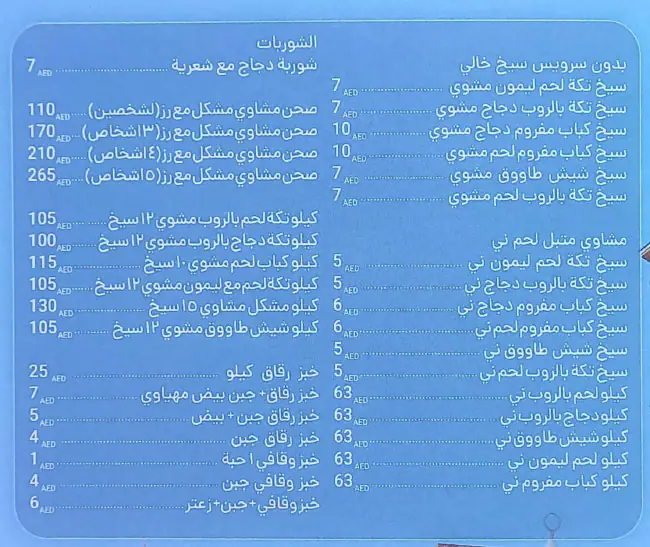 بدون سرويس سيخ خالي
سيخ تكة لحم ليمون مشوي 7 AED
سيخ تكة بالروب دجاج مشوي 7 AED
سيخ كباب مفروم دجاج مشوي 10 AED
سيخ كباب مفروم لحم مشوي 10 AED
سيخ شيش طاووق مشوي 7 AED
سيخ تكة بالروب لحم مشوي 7 AED
مشاوي متبل لحم ني
سيخ تكة لحم ليمون ني 5 AED
سيخ تكة بالروب دجاج ني 5 AED
سيخ كباب مفروم دجاج ني 6 AED
سيخ كباب مفروم لحم ني 6 AED
سيخ شيش طاووق ني 5 AED
سيخ تكة بالروب لحم ني 5 AED
كيلو لحم بالروب ني 63 AED
كيلو دجاج بالروب ني 63 AED
كيلو شيش طاووق ني 63 AED
كيلو لحم ليمون ني 63 AED
كيلو كباب مفروم ني 63 AED
الشوربات
شوربة دجاج مع شعرية 7 AED
صحن مشاوي مشكل مع رز (لشخصين) 110 AED
صحن مشاوي مشكل مع رز (٣اشخاص) 170 AED
صحن مشاوي مشكل مع رز (٤اشخاص) 210 AED
صحن مشاوي مشكل مع رز (٥اشخاص) 265 AED
كيلو تكة لحم بالروب مشوي ١٢ سيخ 105 AED
كيلو تكة دجاج بالروب مشوي ١٢ سيخ 100 AED
كيلو كباب لحم مشوي ١٠ سيخ 115 AED
كيلو تكة لحم مع ليمون مشوي ١٢ سيخ 105 AED
كيلو مشكل مشاوي ١٥ سيخ 130 AED
كيلو شيش طاووق مشوي ١٢ سيخ 105 AED
خبز رقاق كيلو 25 AED
خبز رقاق+ جبن بيض مهياوي 7 AED
خبز رقاق جبن + بيض 5 AED
خبز رقاق جبن 4 AED
خبز وقافي ١ حبة 1 AED
خبز وقافي جبن 4 AED
خبز وقافي+جبن+زعتر 6 AED